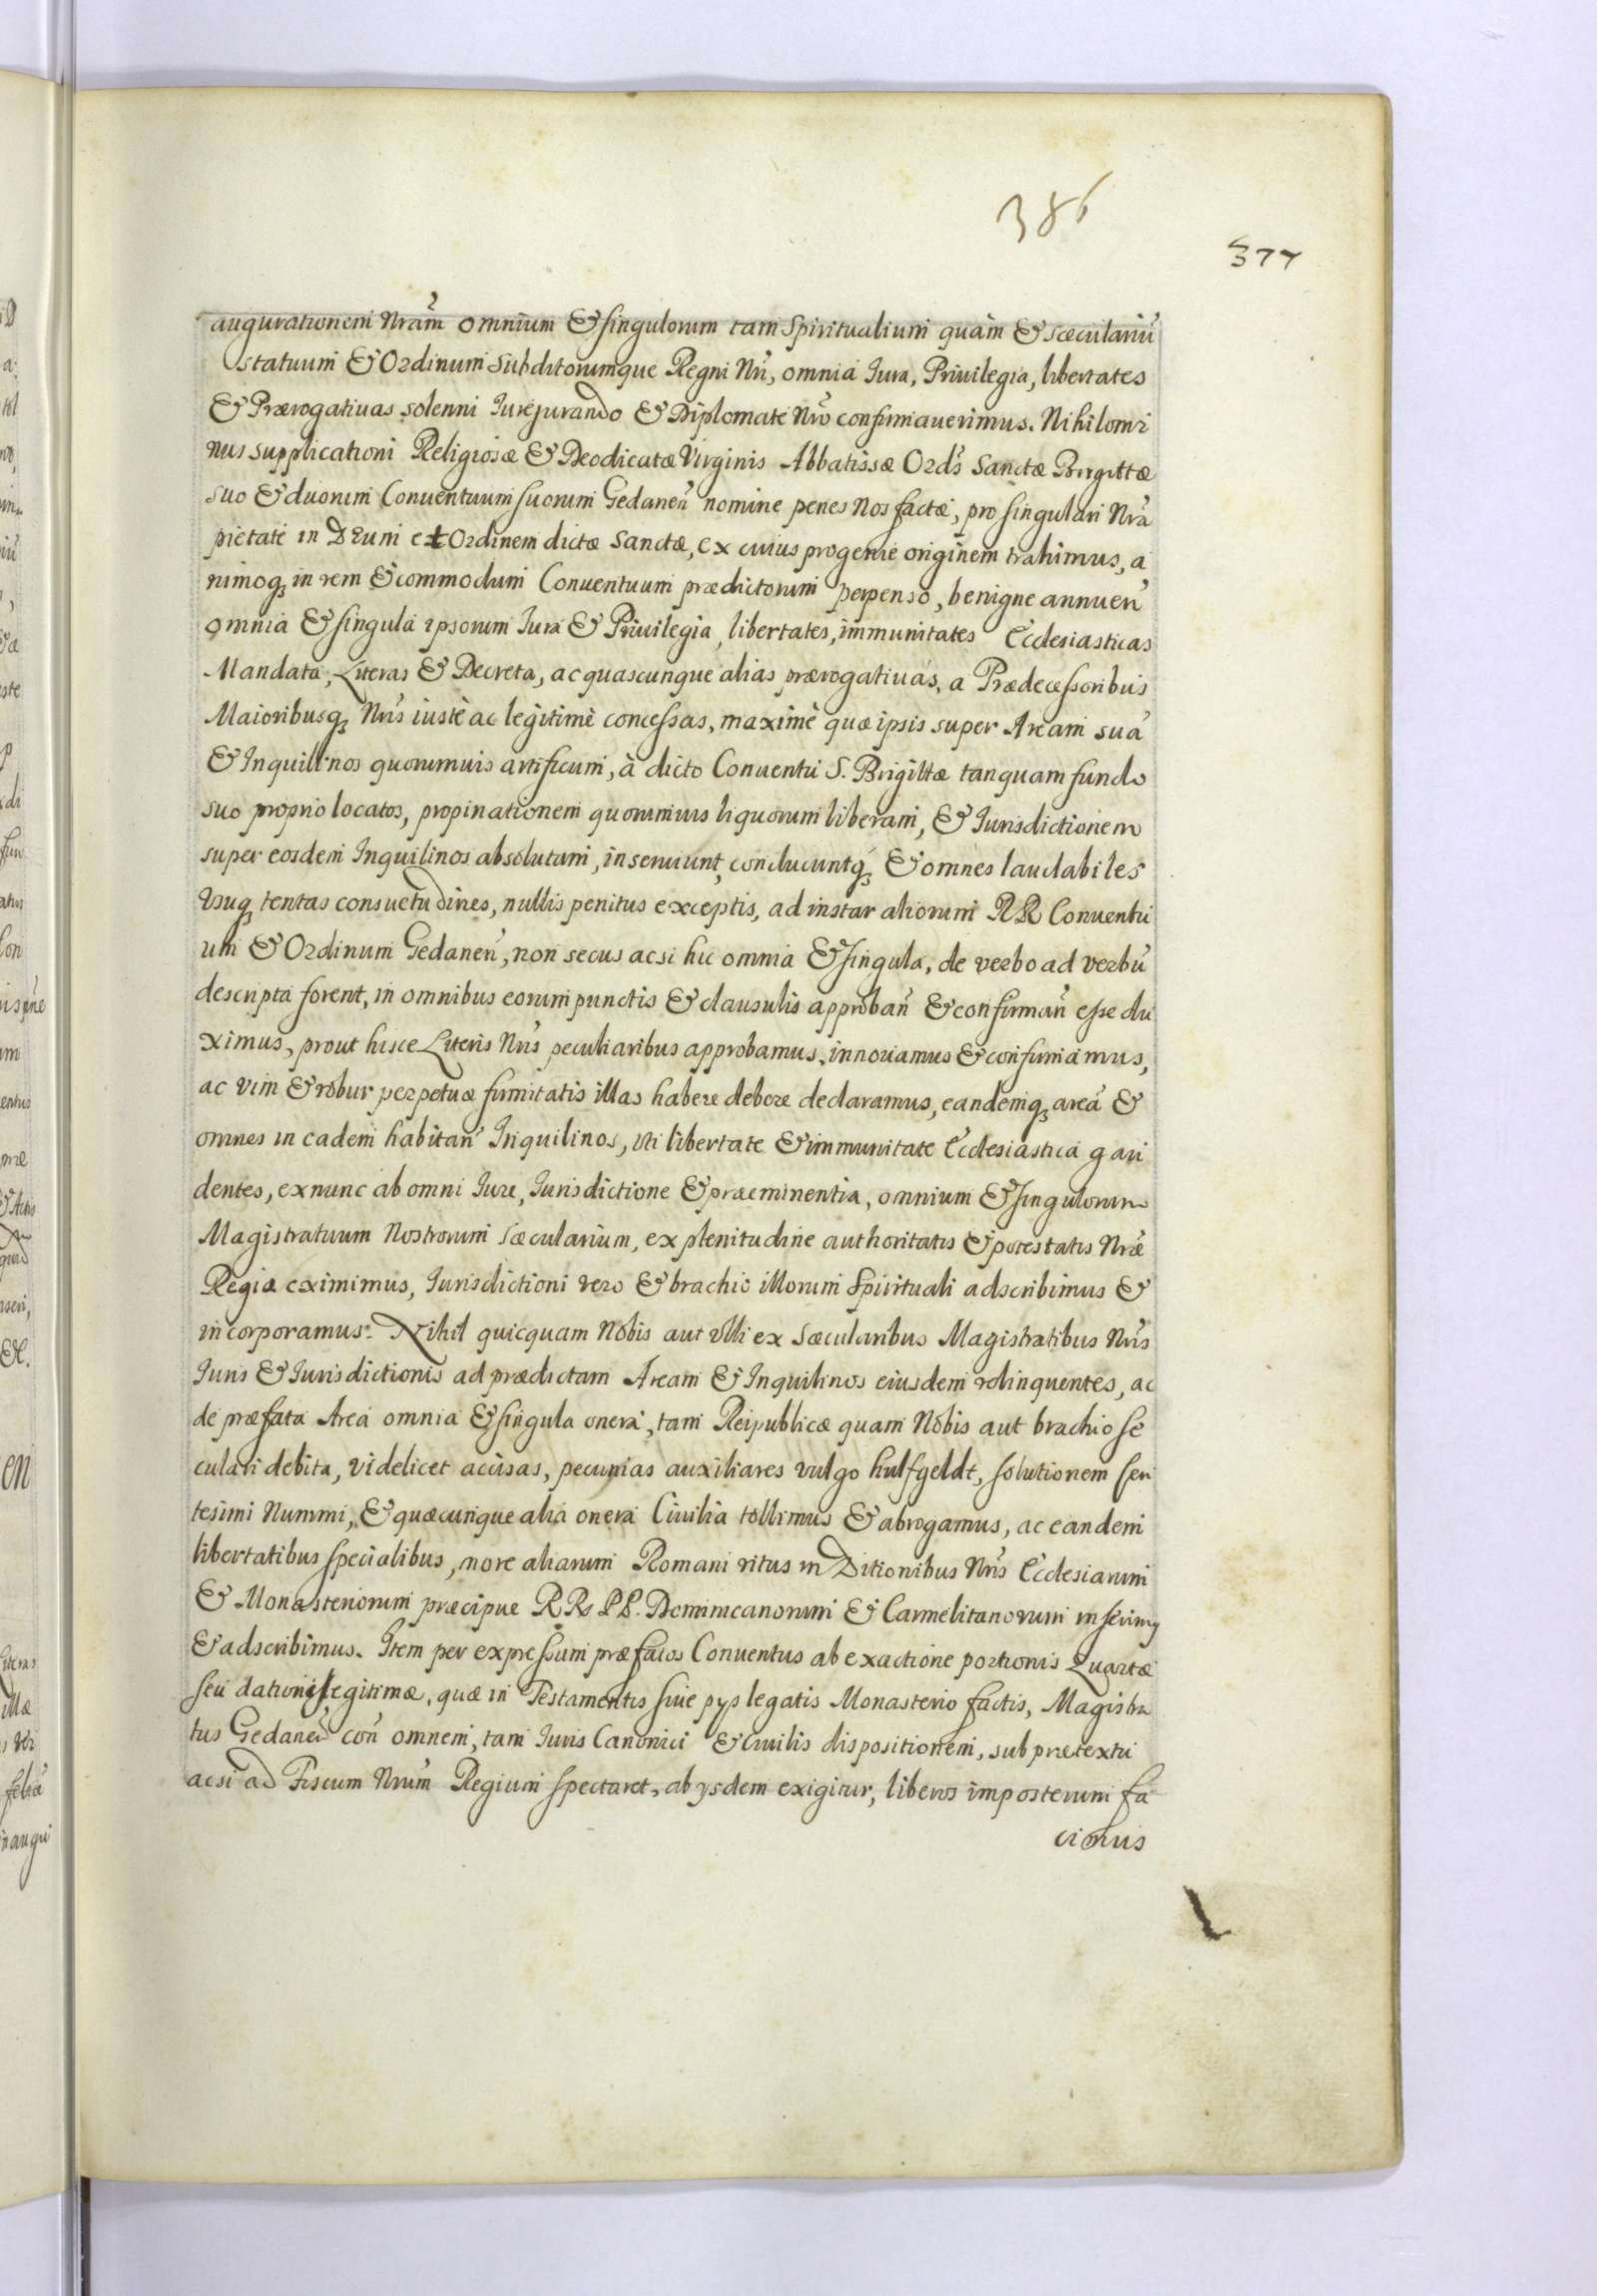 386
377
augurationem Nrãm omnium & singulorum tam Spiritualium quàm & sæculariũ
statuum & Ordinum Subditorumque Regni Nri, omnia Iura, Priuilegia, libertates
& Prærogatiuas solenni Iurejurando & Diplomate Nrõ confirmauerimus. Nihilomi
nus supplicationi Religiosæ & Deodicatæ Virginis Abbatissæ Ordis Sanctæ Birgittæ
suo & duorum Conuentuum suorum Gedaneñ nomine penes Nos factæ, pro singulari Nrã
pietate in DEum et Ordinem dictæ Sanctæ, ex cuius progenie originem trahimus, a
nimoq3 in rem & commodum Conuentuum prædictorum perpenso, benigne annueñ
omnia & singula ipsorum Iura & Priuilegia, libertates, immunitates Ecclesiasticas
Mandata, Literas & Decreta, ac quascunque alias prærogatiuas, a Prædecessoribus
Maioribusq3 Nris iustè ac legitimè concessas, maximè quæ ipsis super Aream suã
& Inquilinos quorumuis artificum, à dicto Conuentu S. Brigittæ tanquam fundo
suo proprio locatos, propinationem quorumuis liquorum liberam, & Iurisdictionem
super eosdem Inquilinos absolutam, inseruiunt, conducuntq3 & omnes laudabiles
Vsuq3 tentas consuetudines, nullis penitus exceptis, ad instar aliorum RR Conuentu
um & Ordinum Gedaneñ, non secus acsi hic omnia & singula, de verbo ad verbũ
descripta forent, in omnibus eorum punctis & clausulis approbañ & confirmañ esse du
ximus, prout hisce Literis Nris peculiaribus approbamus, innouamus & confirmamus,
ac vim & robur perpetuæ firmitatis illas habere debere declaramus, eandemq3 areã &
omnes in eadem habitañ Inquilinos, vti libertate & immunitate Ecclesiastica gau
dentes, ex nunc ab omni Iure, Iurisdictione & præeminentia, omnium & singulorum
Magistratuum Nostrorum sæcularium, ex plenitudine authoritatis & potestatis Nræ
Regiæ eximimus, Iurisdictioni vero & brachio illorum Spirituali adscribimus &
incorporamus. Nihil quicquam Nobis aut vlli ex Sæcularibus Magistratibus Nris
Iuris & Iurisdictionis ad prædictam Aream & Inquilinos eiusdem relinquentes, ac
de præfata Area omnia & singula onera, tam Reipublicæ quam Nobis aut brachio se
culari debita, videlicet accisas, pecunias auxiliares vulgo hulfgeldt, solutionem sen
tesimi Nummi, & quæcunque alia onera Ciuilia tollimus & abrogamus, ac eandem
libertatibus specialibus, more aliarum Romani ritus in Ditionibus Nris Ecclesiarum
& Monasteriorum præcipue RR. PP. Dominicanorum & Carmelitanorum inserimq
& adscribimus. Item per expressum præfatos Conuentus ab exactione portionis Quartæ
seu dationis legitimæ, quæ in Testamentis siue pys legatis Monasterio factis, Magistra
tus Gedaneñ coñ omnem, tam Iuris Canonici & Ciuilis dispositionem, sub prætextu
acsi ad Fiscum Nrum Regium spectaret, ab ysdem exigitur, liberos imposterum fa
cimus